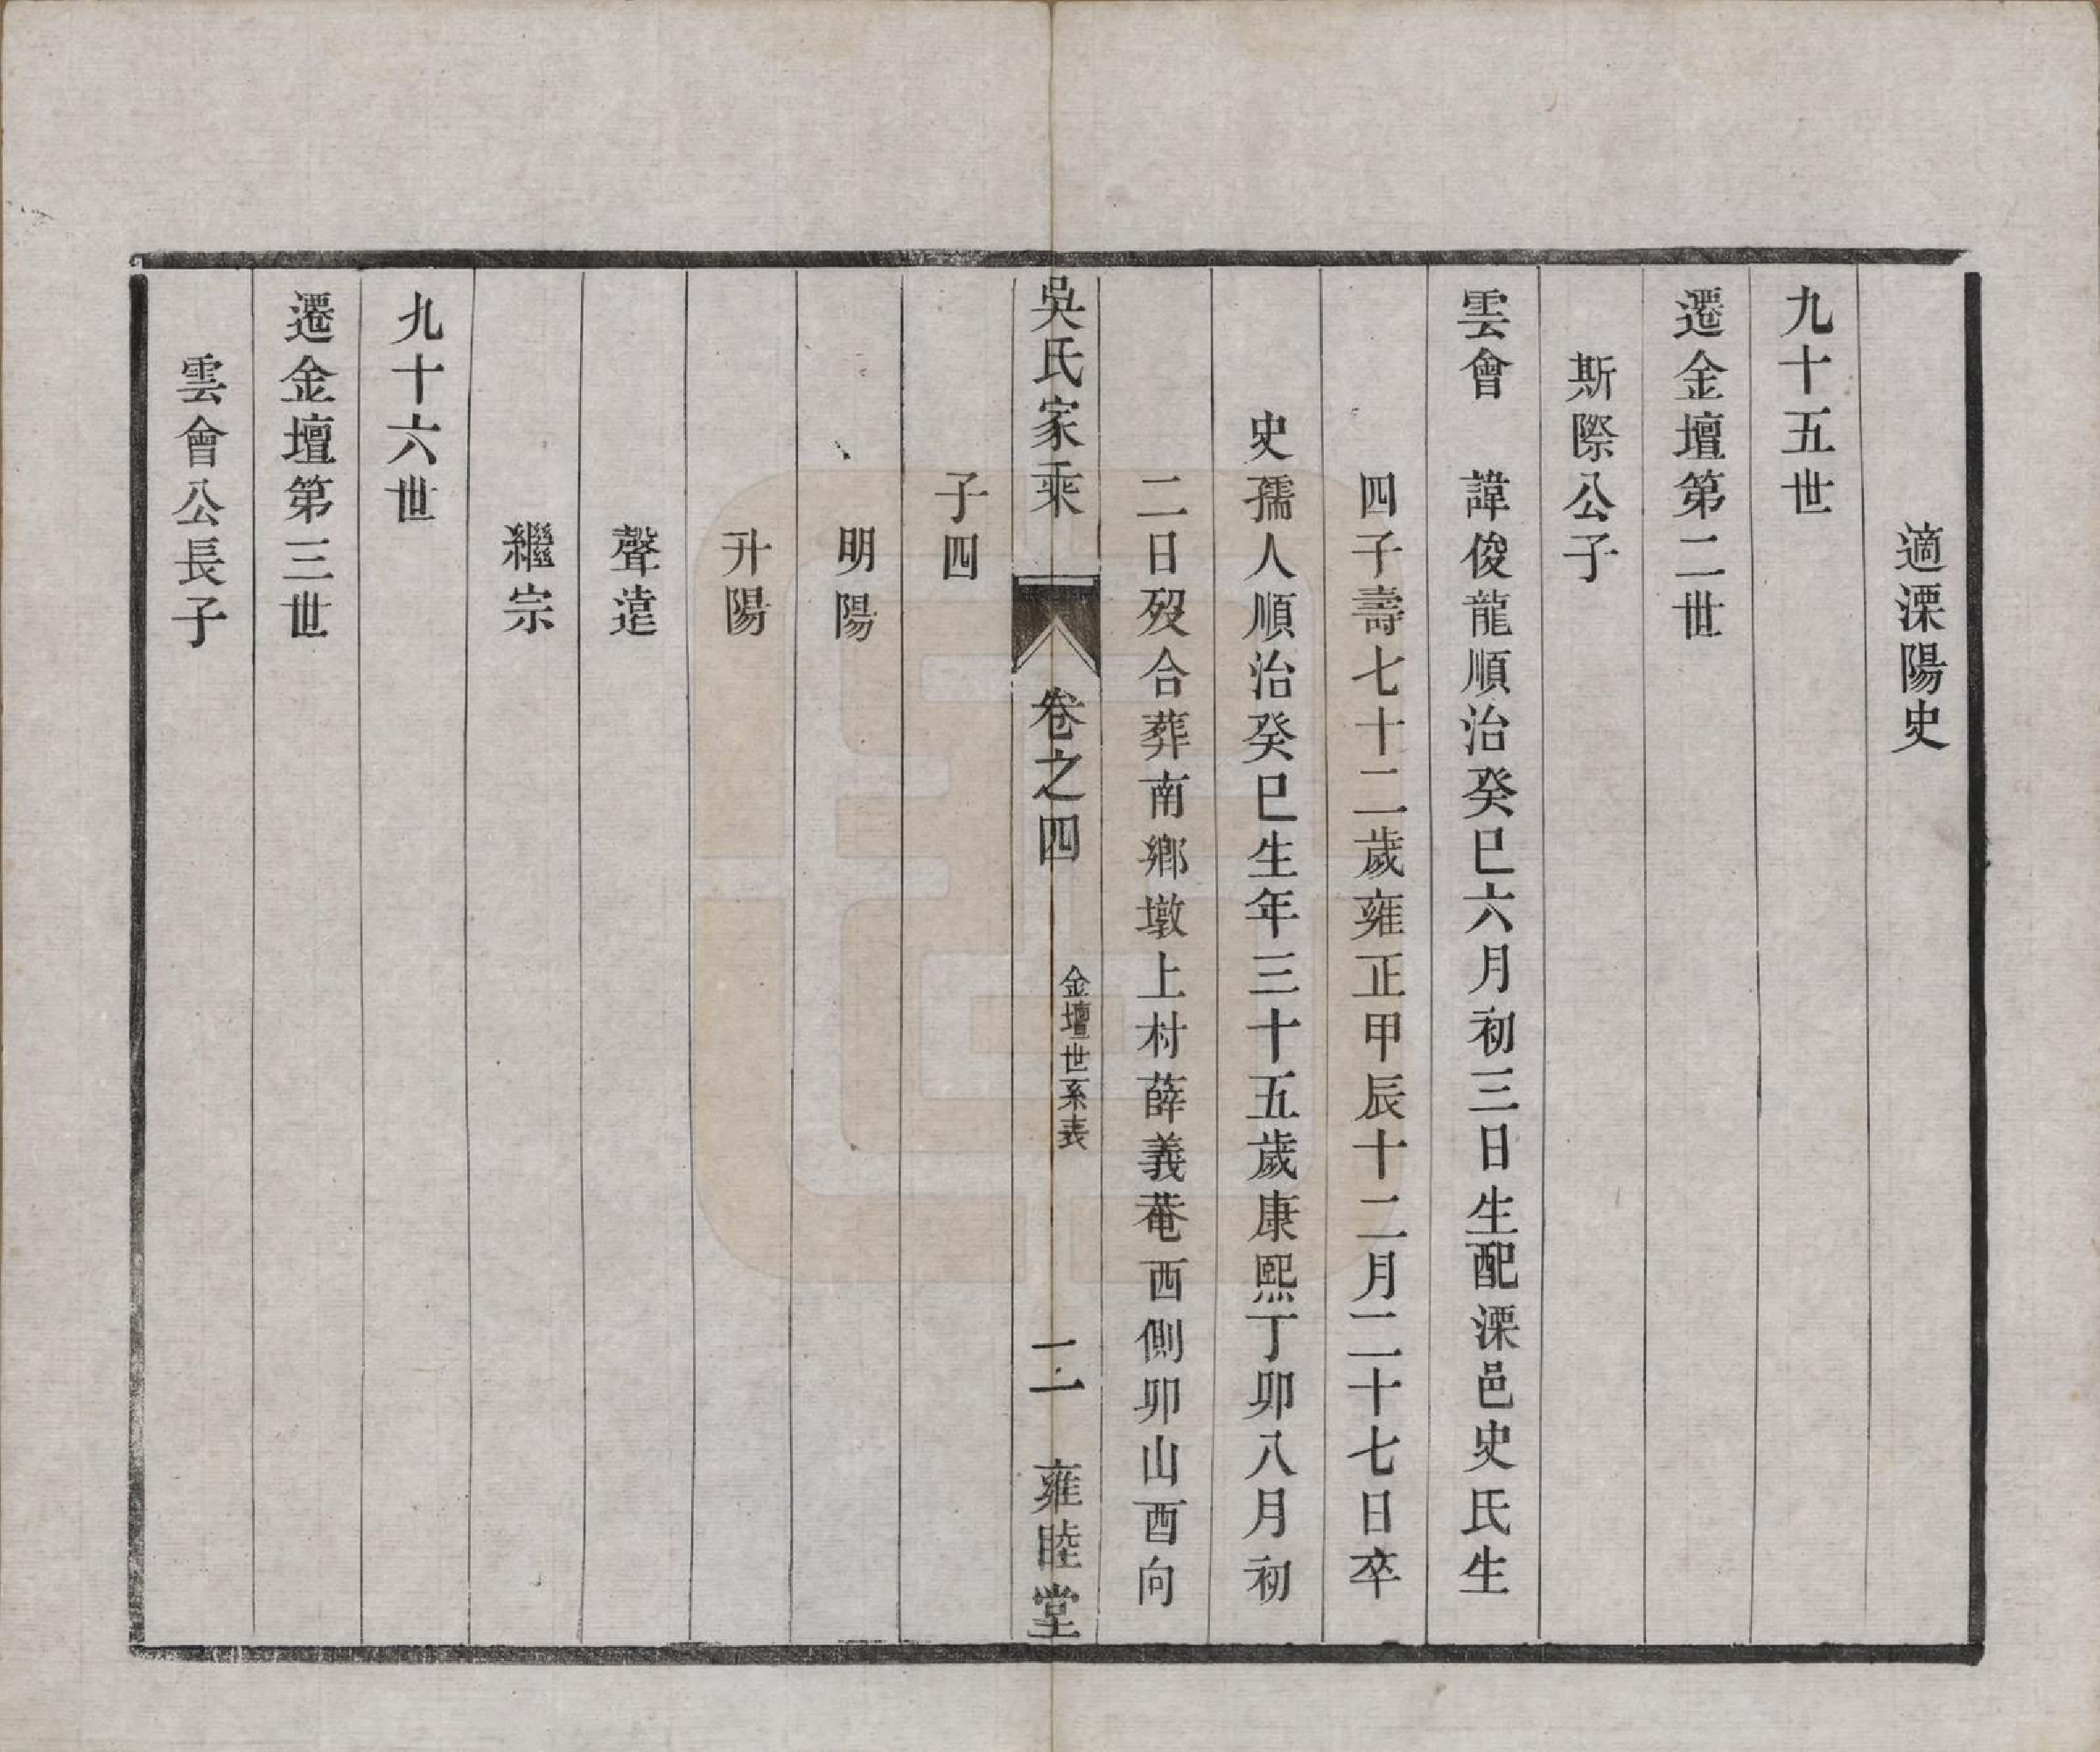 適溧陽史
九十五世
遷金壇第二世
斯際公子
雲會　諱俊龍順治癸巳六月初三日生配溧邑史氏生
四子壽七十二歲雍正甲辰十二月二十七日卒
史孺人順治癸巳生年三十五歲康熙丁卯八月初
二日歿合葬南鄉墩上村薛義菴西側卯山酉向
吳氏家乘　卷之四　金壇世系表　二　雍睦堂
子四
明陽
升陽
聲遠
繼宗
九十六世
遷金壇第三世
雲會公長子